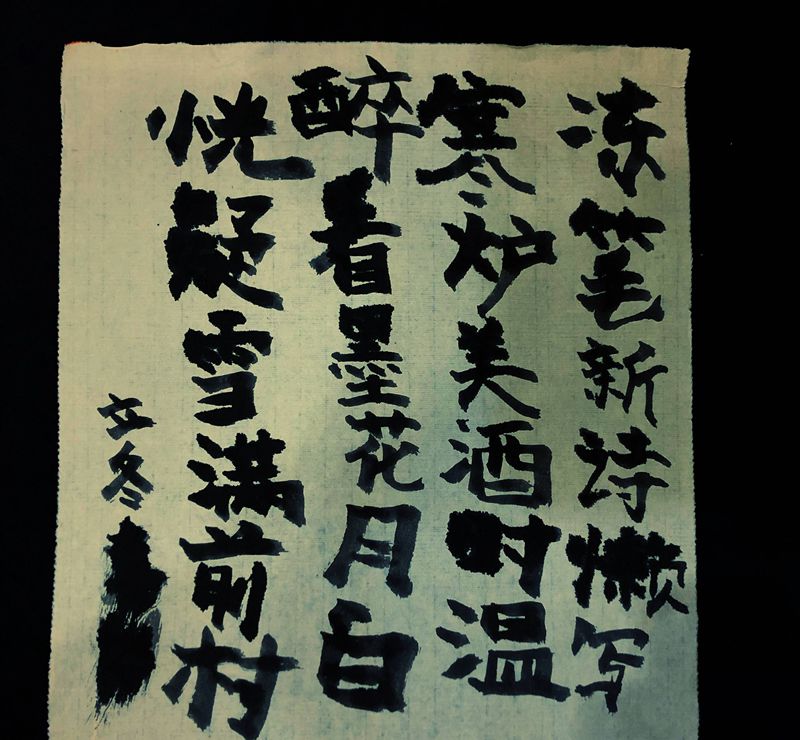 冻笔新诗懒写
寒炉美酒时温
醉看墨花月白
恍疑雪满前村
立冬